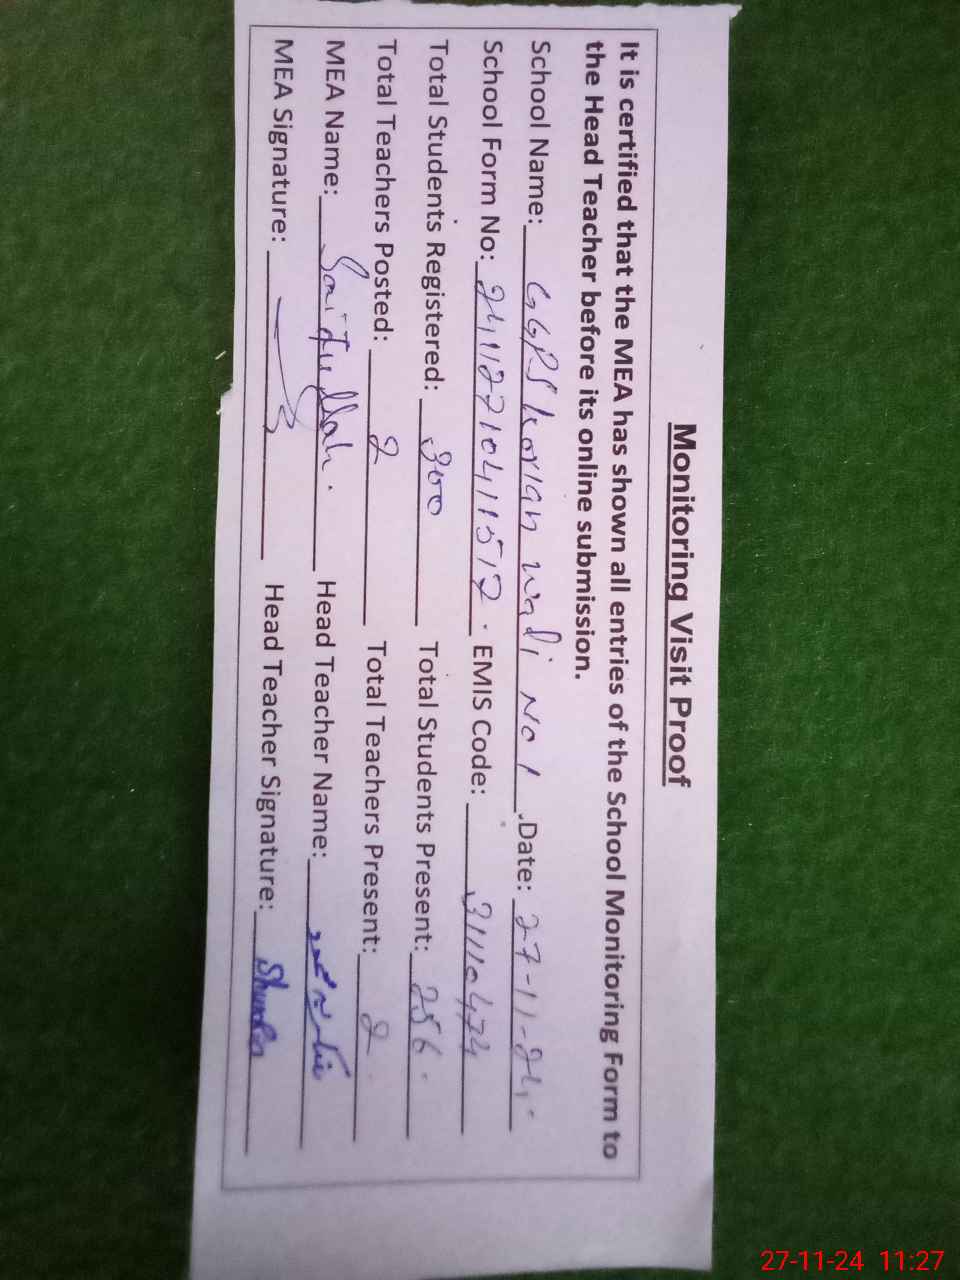 Monitoring Visit Proof
It is certified that the MEA has shown all entries of the School Monitoring Form to
the Head Teacher before its online submission.
School Name: GGPS Korian wali No 1 .Date: 27-11-24
School Form No: 241127104111517 EMIS Code: 31110474
Total Students Registered: 300 Total Students Present: 256
Total Teachers Posted: 2 Total Teachers Present: 2
MEA Name: Saifullah. Head Teacher Name:
MEA Signature: Head Teacher Signature:
27-11-24 11:27